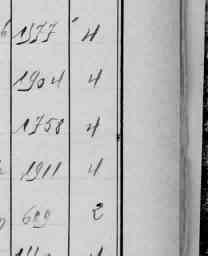 1977 4
1904 4
1758 4
1911 4
689 2